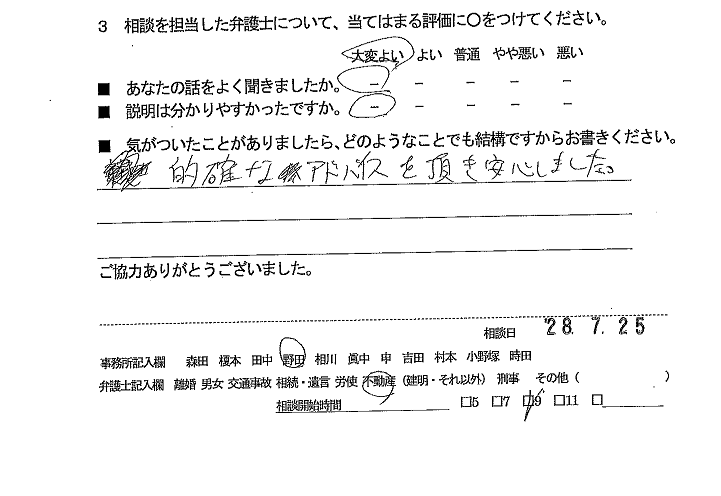 3 相談を担当した弁護士について、当てはまる評価に○をつけてください。
大変よい よい 普通 やや悪い 悪い
■ あなたの話をよく聞きましたか。 － － － － －
■ 説明は分かりやすかったですか。 － － － － －
■ 気がついたことがありましたら、どのようなことでも結構ですからお書きください。
的確なアドバイスを頂き安心しました。
ご協力ありがとうございました。
相談日 '28. 7. 25
事務所記入欄 森田 榎本 田中 野田 相川 眞中 申 吉田 村本 小野塚 時田
弁護士記入欄 離婚 男女 交通事故 相続・遺言 労使 不動産（建明・それ以外） 刑事 その他（ ）
相談開始時間 □5 □7 □9 □11 □